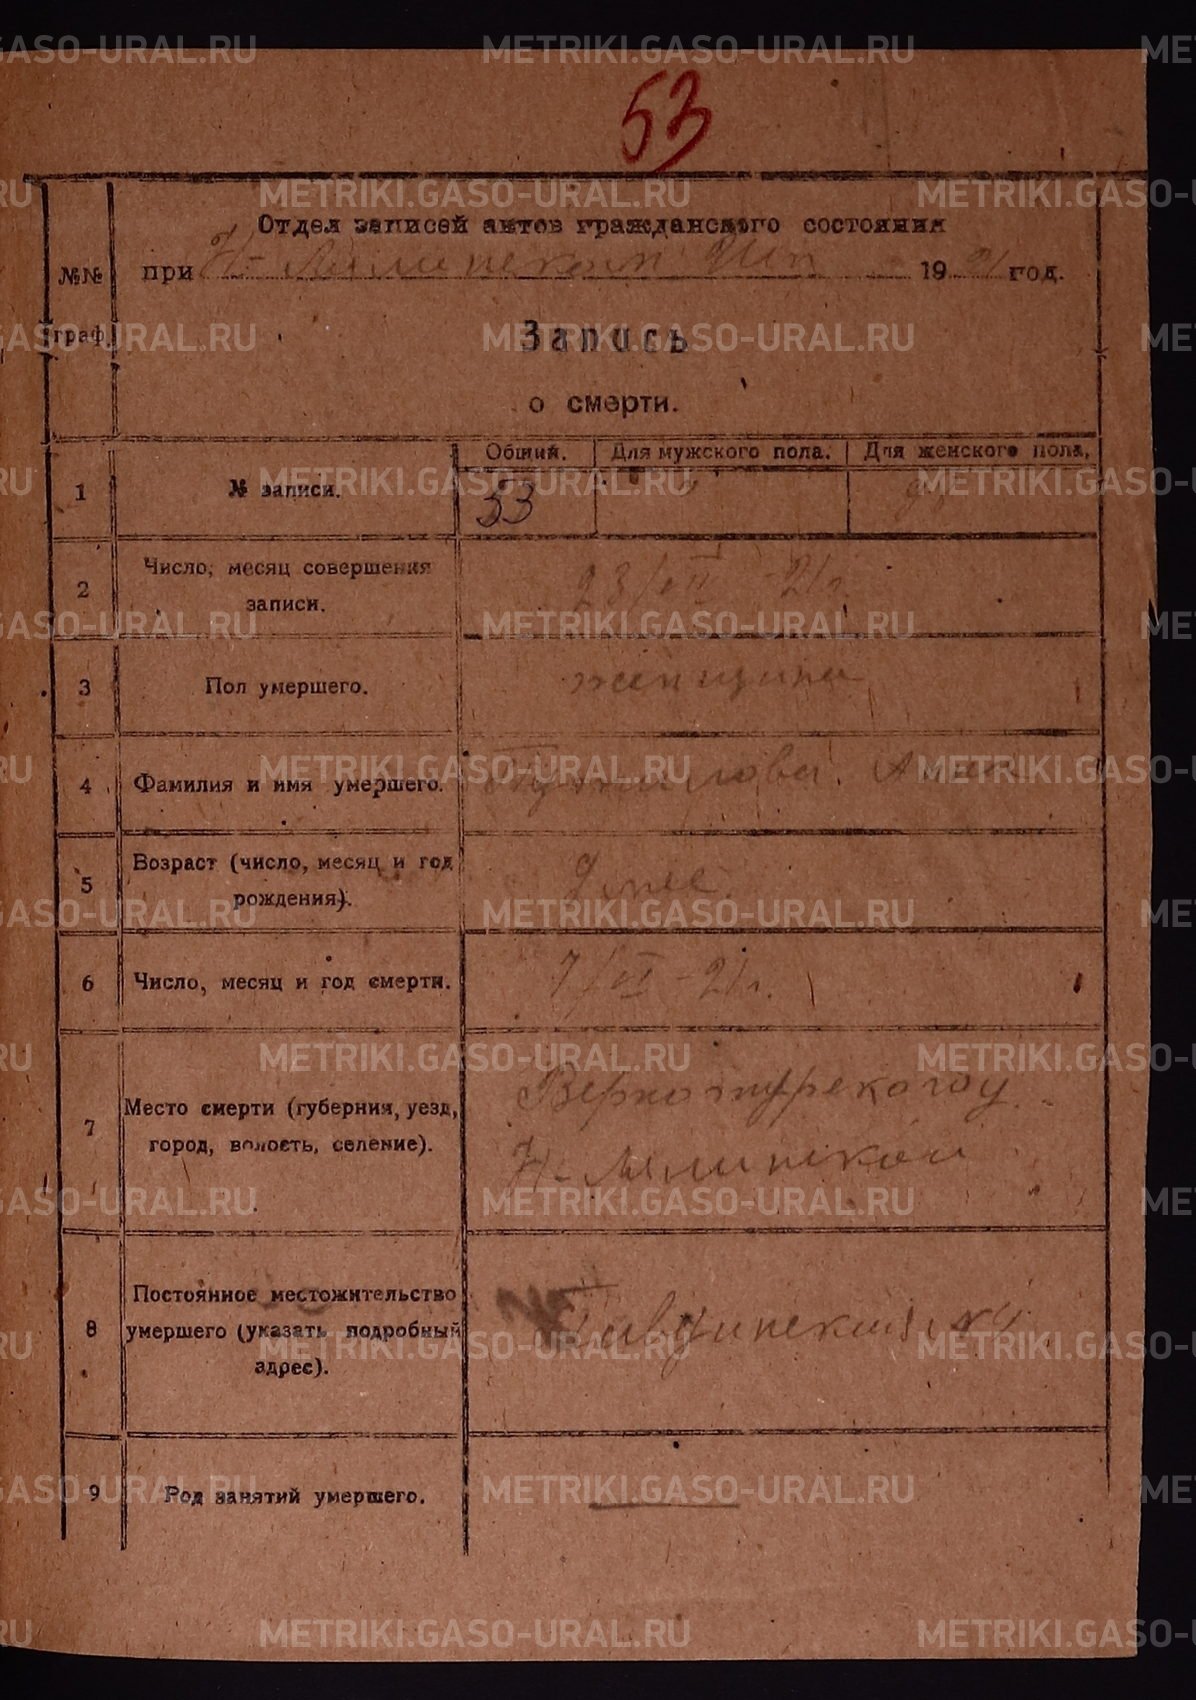 53
Отдел записей актов гражданского состояния
№№ при Н-Лялинском 1921 год.
граф. Запись
о смерти.
Общий. Для мужского пола. Для женского пола.
1 № записи. 53
2 Число, месяц совершения записи. 23/VII-21г.
3 Пол умершего. женщина
4 Фамилия и имя умершего. Анна
5 Возраст (число, месяц и год рождения).
6 Число, месяц и год смерти. 7/VI-21г.
7 Место смерти (губерния, уезд, Верхотурского у
город, волость, селение). Н-Лялинской
8 Постоянное местожительство
умершего (указать подробный
адрес).
9 Род занятий умершего. —
METRIKI.GASO-URAL.RU